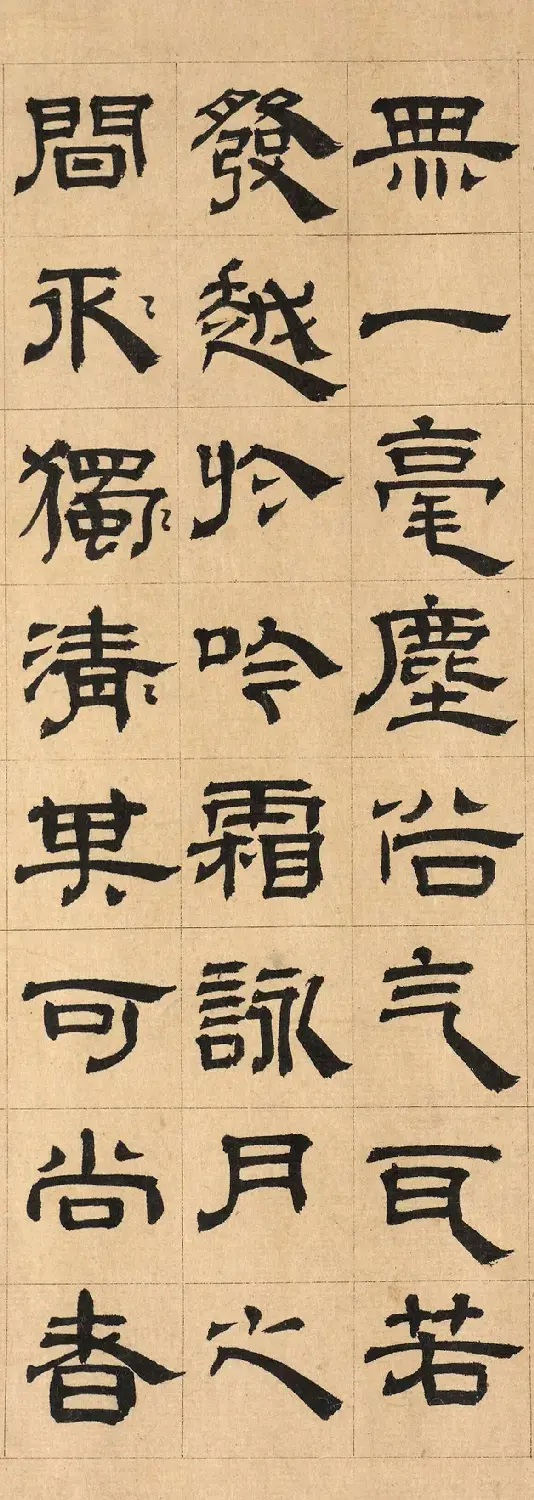 無一毫塵俗气若
發越於吟霜詠月之
間獨〻清〻果可尚者